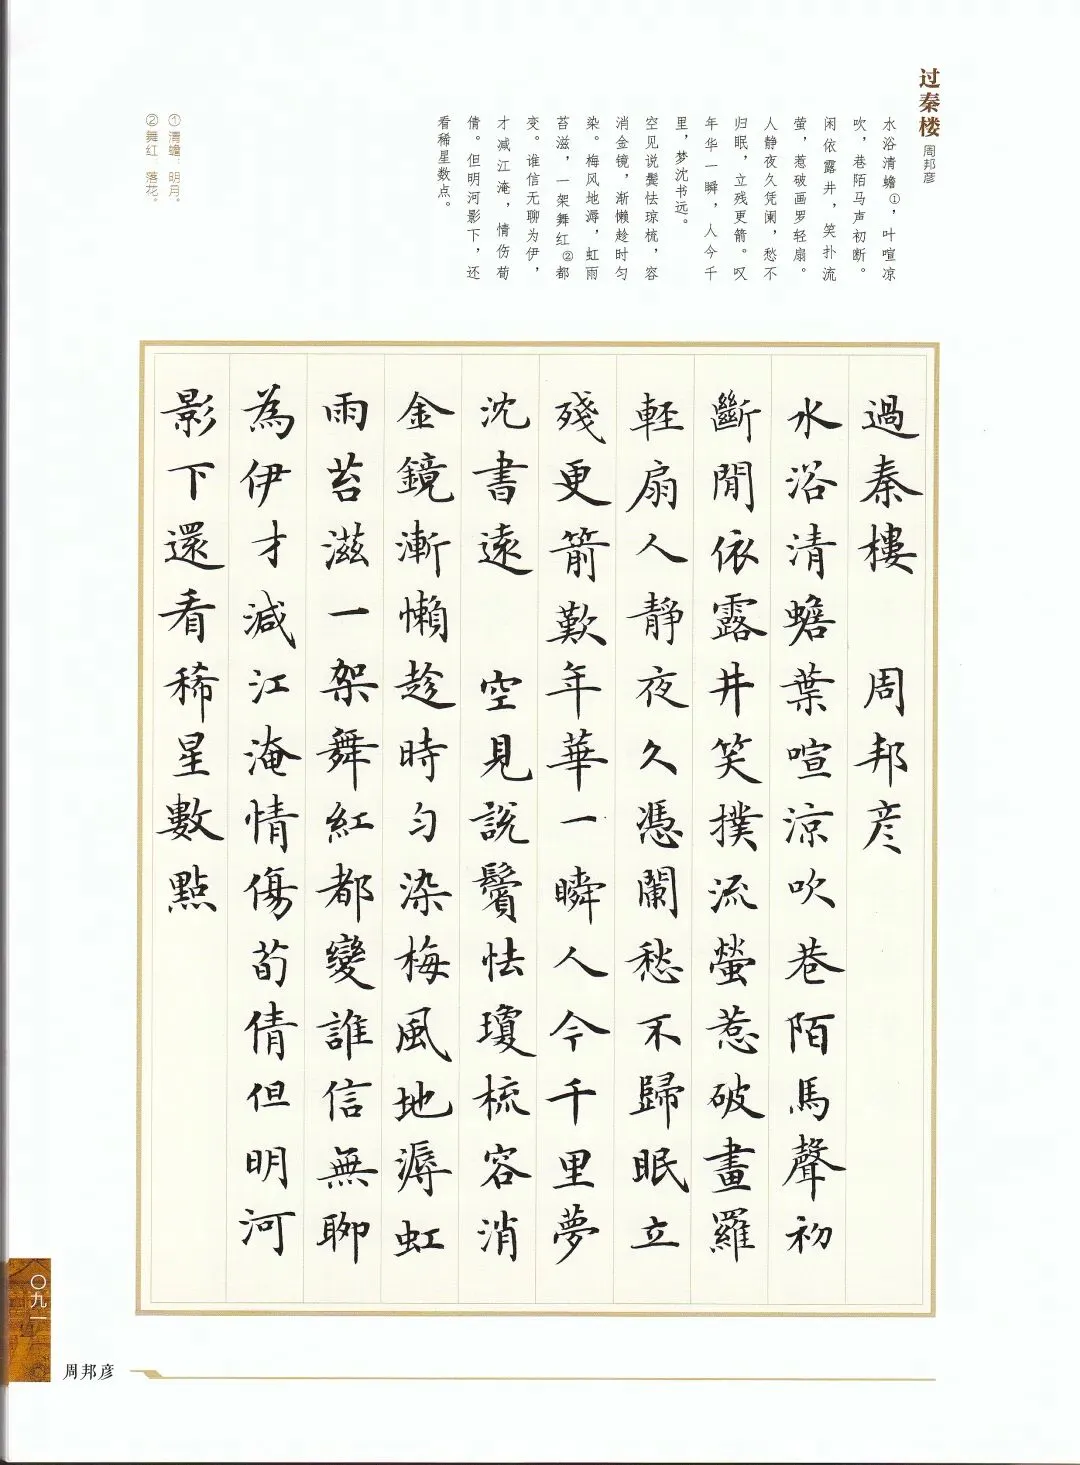 过秦楼 周邦彦
水浴清蟾①，叶喧凉
吹，巷陌马声初断。
闲依露井，笑扑流
萤，惹破画罗轻扇。
人静夜久凭阑，愁不
归眠，立残更箭。叹
年华一瞬，人今千
里，梦沈书远。
空见说鬓怯琼梳，容
消金镜，渐懒趁时匀
染。梅风地溽，虹雨
苔滋，一架舞红②都
变。谁信无聊为伊，
才减江淹，情伤荀
倩。但明河影下，还
看稀星数点。
①清蟾：明月。
②舞红：落花。
過秦樓 周邦彦
水浴清蟾葉喧涼吹巷陌馬聲初
斷閒依露井笑撲流螢惹破畫羅
軽扇人靜夜久憑闌愁不歸眠立
殘更箭歎年華一瞬人今千里夢
沈書遠 空見說鬢怯瓊梳容消
金鏡漸懶趁時匀染梅風地溽虹
雨苔滋一架舞紅都變誰信無聊
為伊才減江淹情傷荀倩但明河
影下還看稀星數點
〇九一
周邦彦